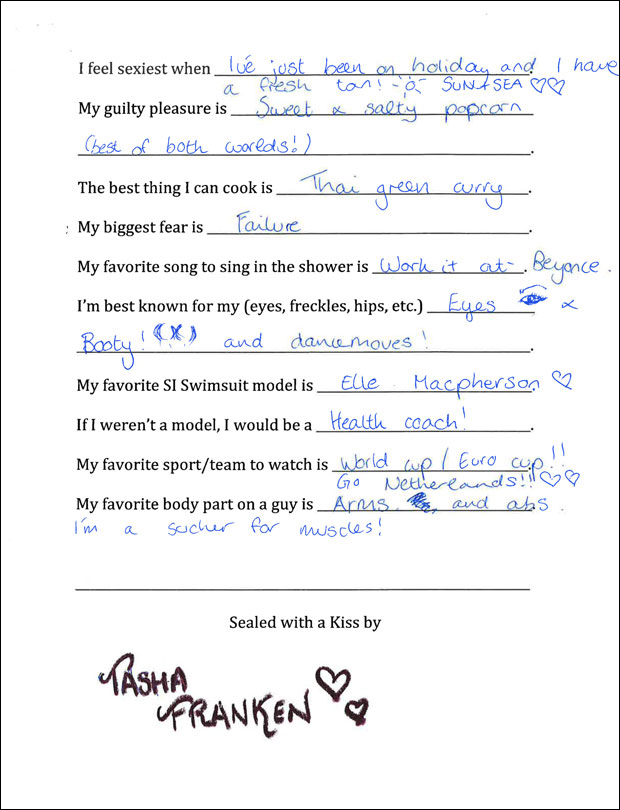 I feel sexiest when I've just been on holiday and I have
a fresh tan! SUN & SEA
My guilty pleasure is Sweet & salty popcorn
(best of both worlds!).
The best thing I can cook is Thai green curry.
My biggest fear is Failure.
My favorite song to sing in the shower is Work it at -. Beyonce.
I'm best known for my (eyes, freckles, hips, etc.) Eyes &
Booty! and dancemoves!.
My favorite SI Swimsuit model is Elle Macpherson
If I weren't a model, I would be a Health coach!.
My favorite sport/team to watch is World cup / Euro cup!!
Go Netherlands!!
My favorite body part on a guy is Arms and abs.
I'm a sucher for muscles!
Sealed with a Kiss by
TASHA
FRANKEN